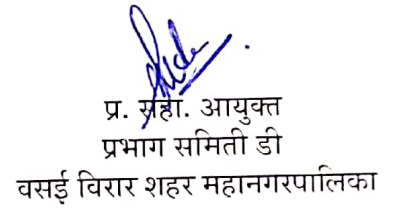 प्र. सहा. आयुक्त
प्रभाग समिती डी
वसई विरार शहर महानगरपालिका